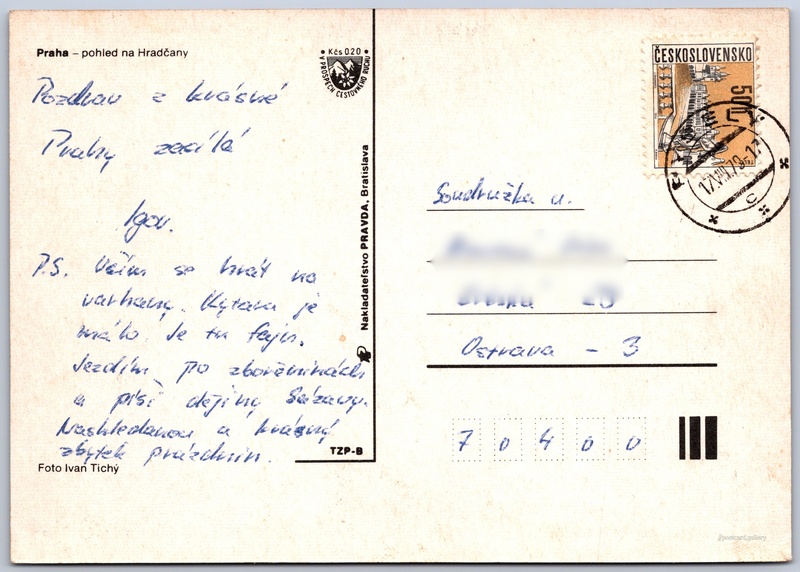 Praha – pohled na Hradčany
Kčs 0.20
V PROSPĚCH CESTOVNÉHO RUCHU
Pozdrav z krásné
Prahy zasílá
Igor.
P.S. Učím se hrát na
varhany. Kytara je
málo. Je tu fajn.
Jezdím po zbořeninách
a píši dějiny Sázavy.
Nashledanou a krásný
zbytek prázdnin.
Foto Ivan Tichý
TZP-B
Nakladateľstvo PRAVDA, Bratislava
ČESKOSLOVENSKO
50h
Soudružka u.
29
Ostrava - 3
70400